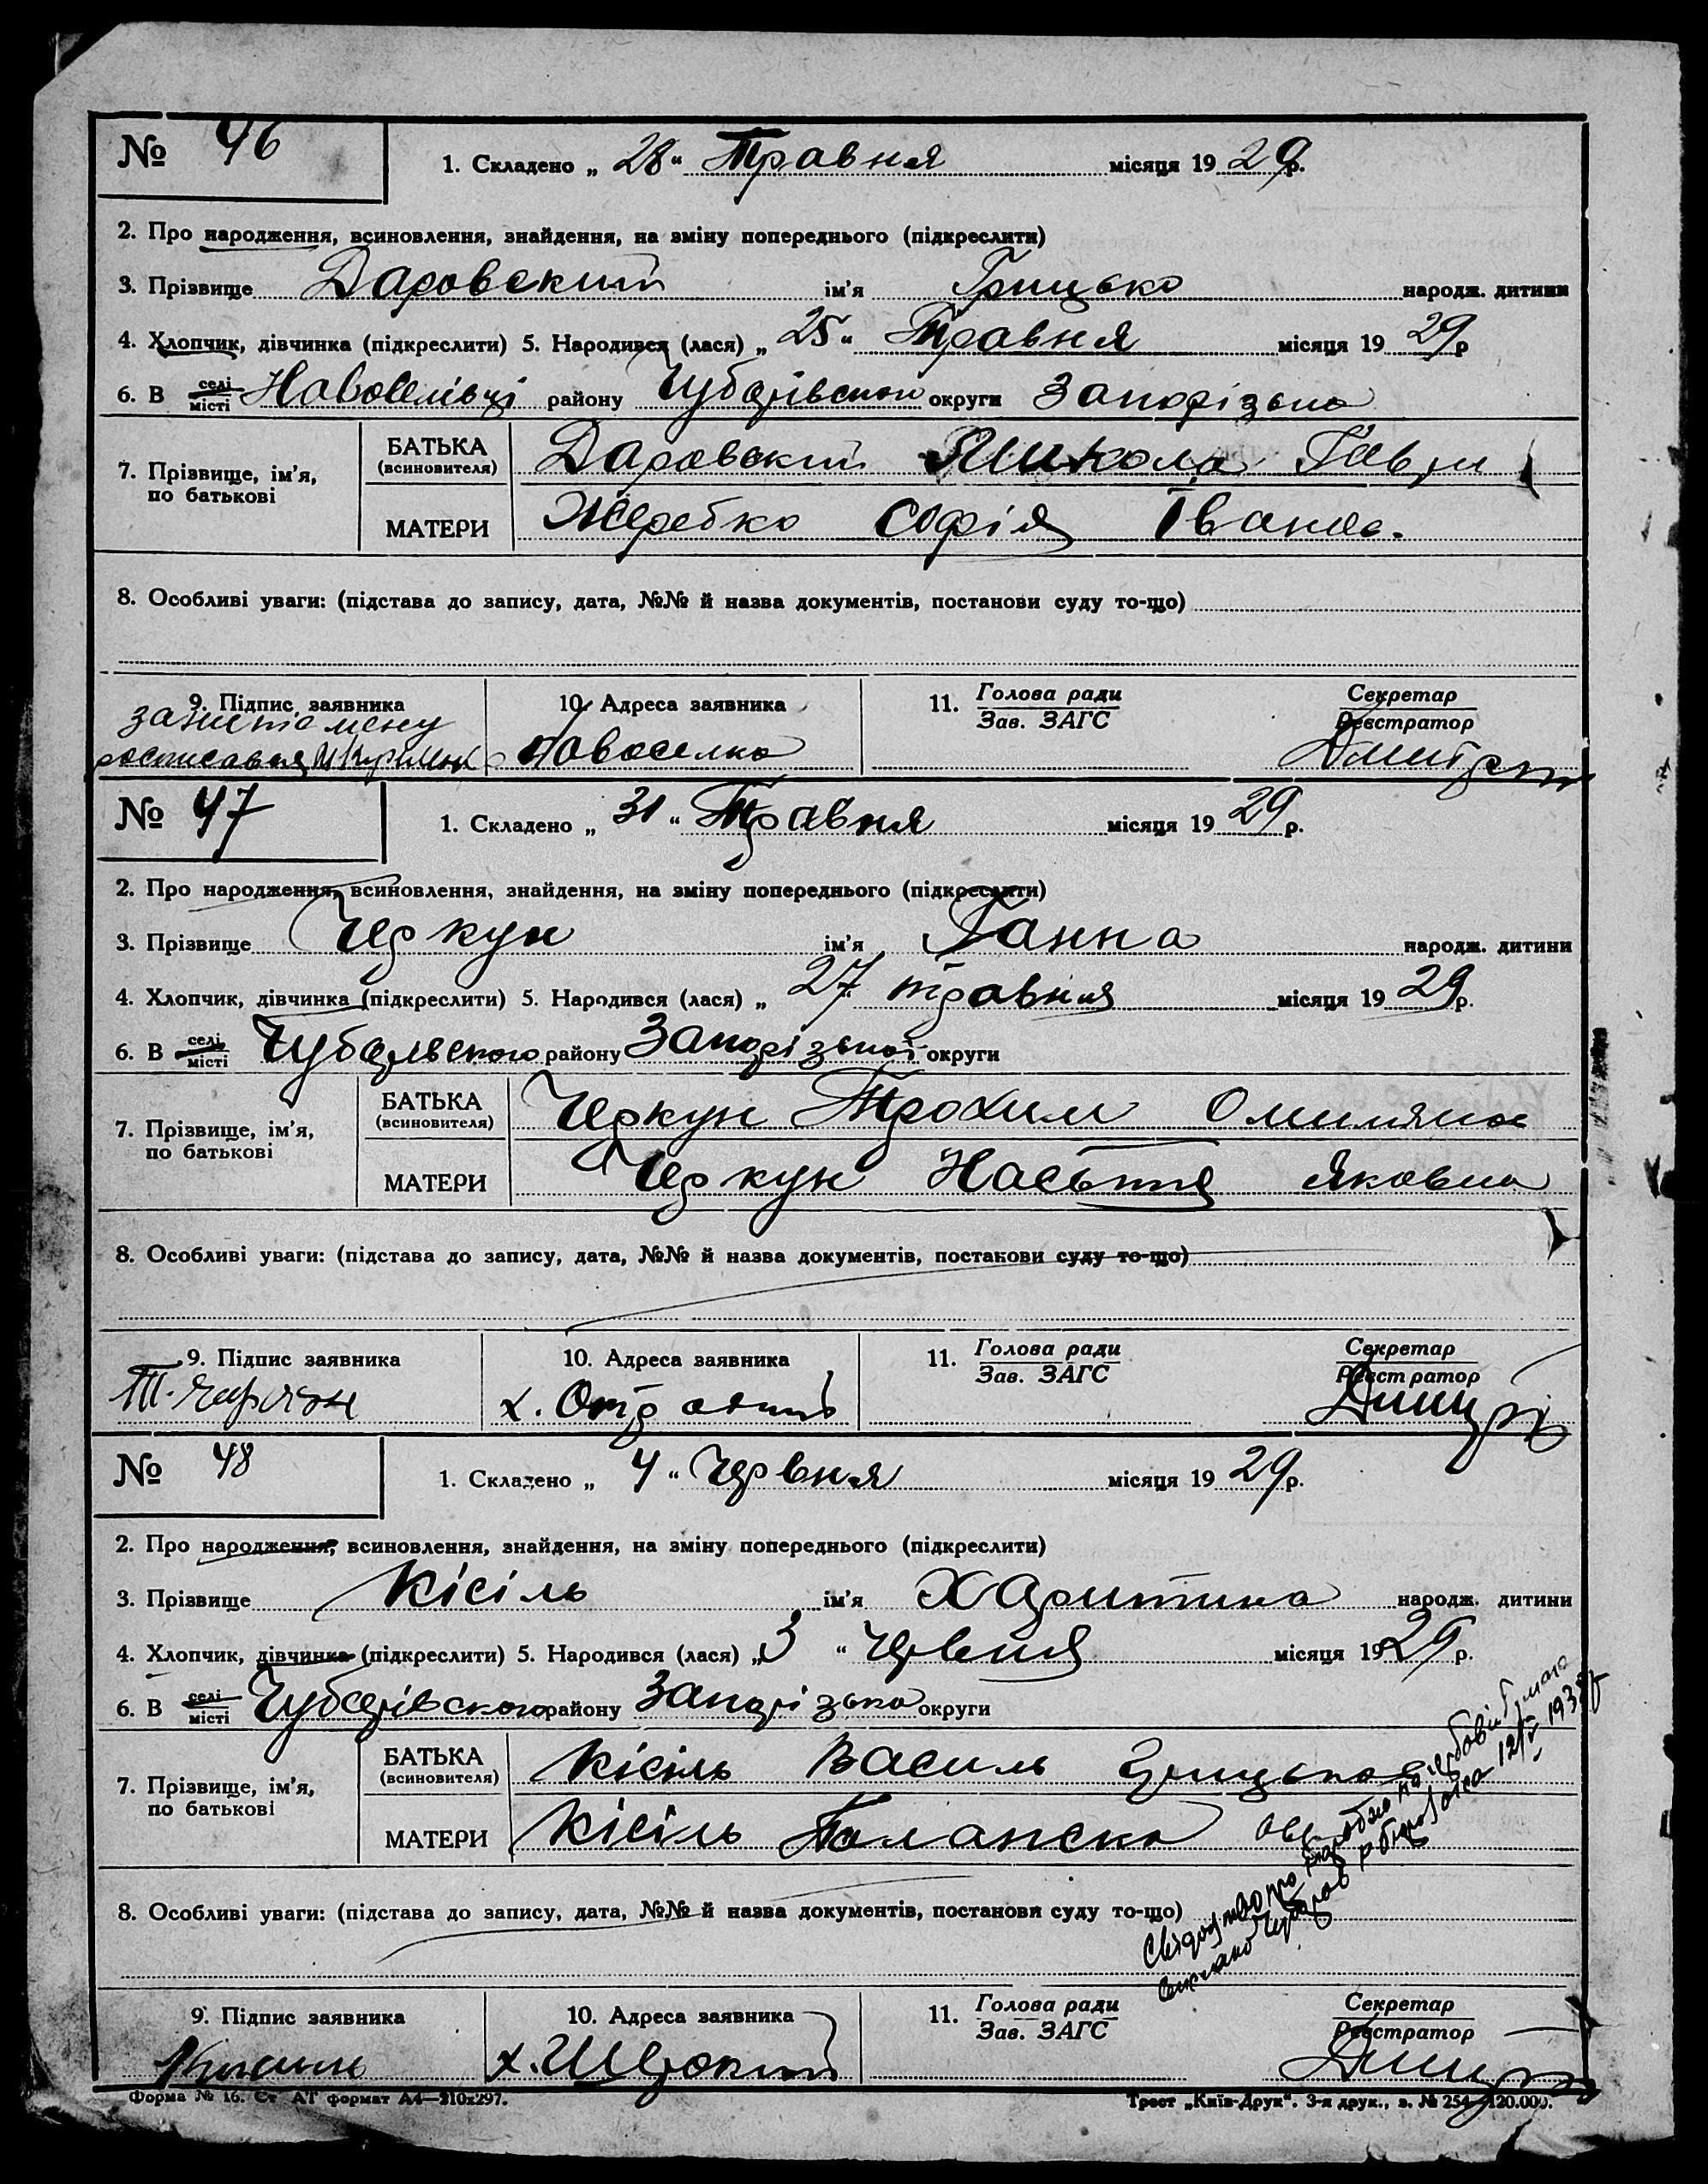 № 46
1. Складено „ 28 “ Травня місяця 19 29 р.
2. Про народження, всиновлення, знайдення, на зміну попереднього (підкреслити)
3. Прізвище Даровский ім'я Грицько народж. дитини
4. Хлопчик, дівчинка (підкреслити) 5. Народився (лася) „ 25 “ Травня місяця 19 29 р
6. В селі місті Новоселівці району Чубарівського округи Запорізька
7. Прізвище, ім'я, по батькові
БАТЬКА (всиновителя) Даровский Микола
МАТЕРИ Жеребко Софія Іванов.
8. Особливі уваги: (підстава до запису, дата, №№ й назва документів, постанови суду то-що)
9. Підпис заявника
10. Адреса заявника
11. Голова ради Зав. ЗАГС
Секретар Реєстратор
Новоселка
№ 47
1. Складено „ 31 “ Травня місяця 19 29 р.
2. Про народження, всиновлення, знайдення, на зміну попереднього (підкреслити)
3. Прізвище Черкун ім'я Ганна народж. дитини
4. Хлопчик, дівчинка (підкреслити) 5. Народився (лася) „ 27 травня місяця 19 29 р.
6. В селі місті Чубарівського району Запорізької округи
7. Прізвище, ім'я, по батькові
БАТЬКА (всиновителя) Черкун Трохим
МАТЕРИ Черкун Настя Яковна
8. Особливі уваги: (підстава до запису, дата, №№ й назва документів, постанови суду то-що)
9. Підпис заявника
10. Адреса заявника
11. Голова ради Зав. ЗАГС
Секретар Реєстратор
х.
№ 48
1. Складено „ 4 “ Червня місяця 19 29 р.
2. Про народження, всиновлення, знайдення, на зміну попереднього (підкреслити)
3. Прізвище Кісіль ім'я Харитина народж. дитини
4. Хлопчик, дівчинка (підкреслити) 5. Народився (лася) „ 3 “ Червня місяця 19 29 р.
6. В селі місті Чубарівського району Запорізька округи
7. Прізвище, ім'я, по батькові
БАТЬКА (всиновителя) Кісіль Василь Грицьков
МАТЕРИ Кісіль
8. Особливі уваги: (підстава до запису, дата, №№ й назва документів, постанови суду то-що)
9. Підпис заявника
10. Адреса заявника
11. Голова ради Зав. ЗАГС
Секретар Реєстратор
х. Широкий
Форма № 16. Ст АТ формат А4—210х297.
Трест „Київ-Друк“. 3-я друк., з. № 254—120.000.